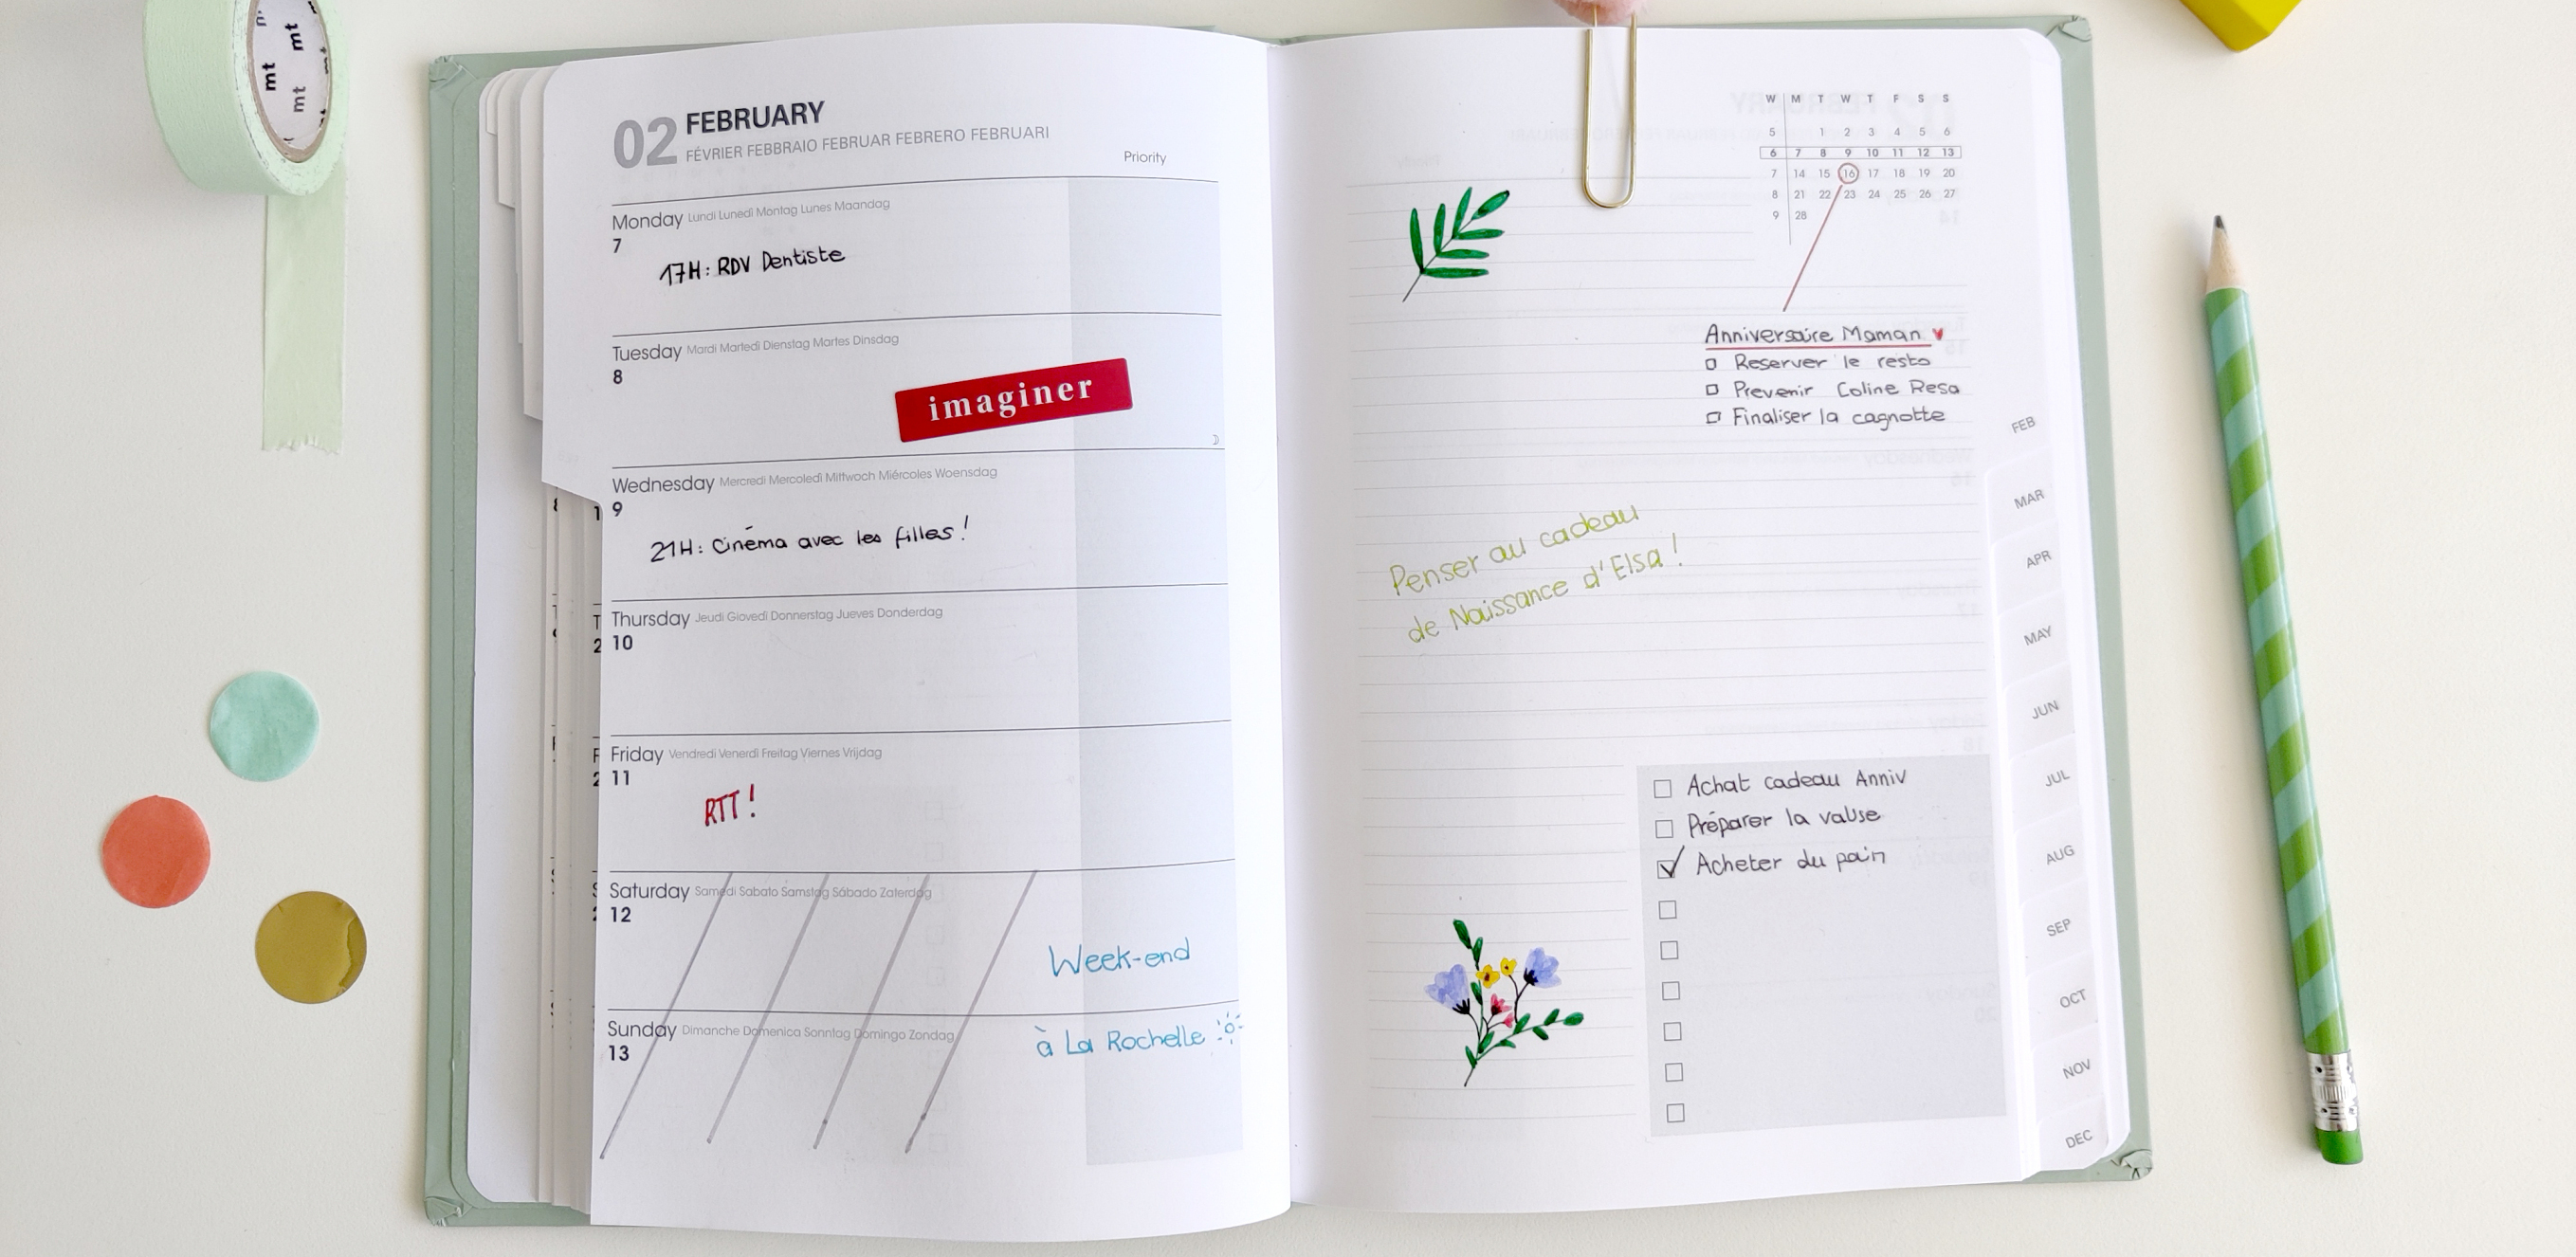 mt mt
mt mt
02 FEBRUARY
FÉVRIER FEBBRAIO FEBRUAR FEBRERO FEBRUARI
Priority
Monday Lundi Lunedì Montag Lunes Maandag
7
17H: RDV Dentiste
Tuesday Mardi Martedì Dienstag Martes Dinsdag
8
imaginer
Wednesday Mercredi Mercoledì Mittwoch Miércoles Woensdag
9
21H: Cinéma avec les filles!
Thursday Jeudi Giovedì Donnerstag Jueves Donderdag
10
Friday Vendredi Venerdì Freitag Viernes Vrijdag
11
RTT!
Saturday Samedi Sabato Samstag Sábado Zaterdag
12
Week-end
Sunday Dimanche Domenica Sonntag Domingo Zondag
13
à La Rochelle
W M T W T F S S
5 1 2 3 4 5 6
6 7 8 9 10 11 12 13
7 14 15 16 17 18 19 20
8 21 22 23 24 25 26 27
9 28
Anniversaire Maman ♥
Reserver le resto
Prevenir Coline Resa
Finaliser la cagnotte
Penser au cadeau
de Naissance d'Elsa!
Achat cadeau Anniv
Préparer la valise
Acheter du pain
FEB
MAR
APR
MAY
JUN
JUL
AUG
SEP
OCT
NOV
DEC